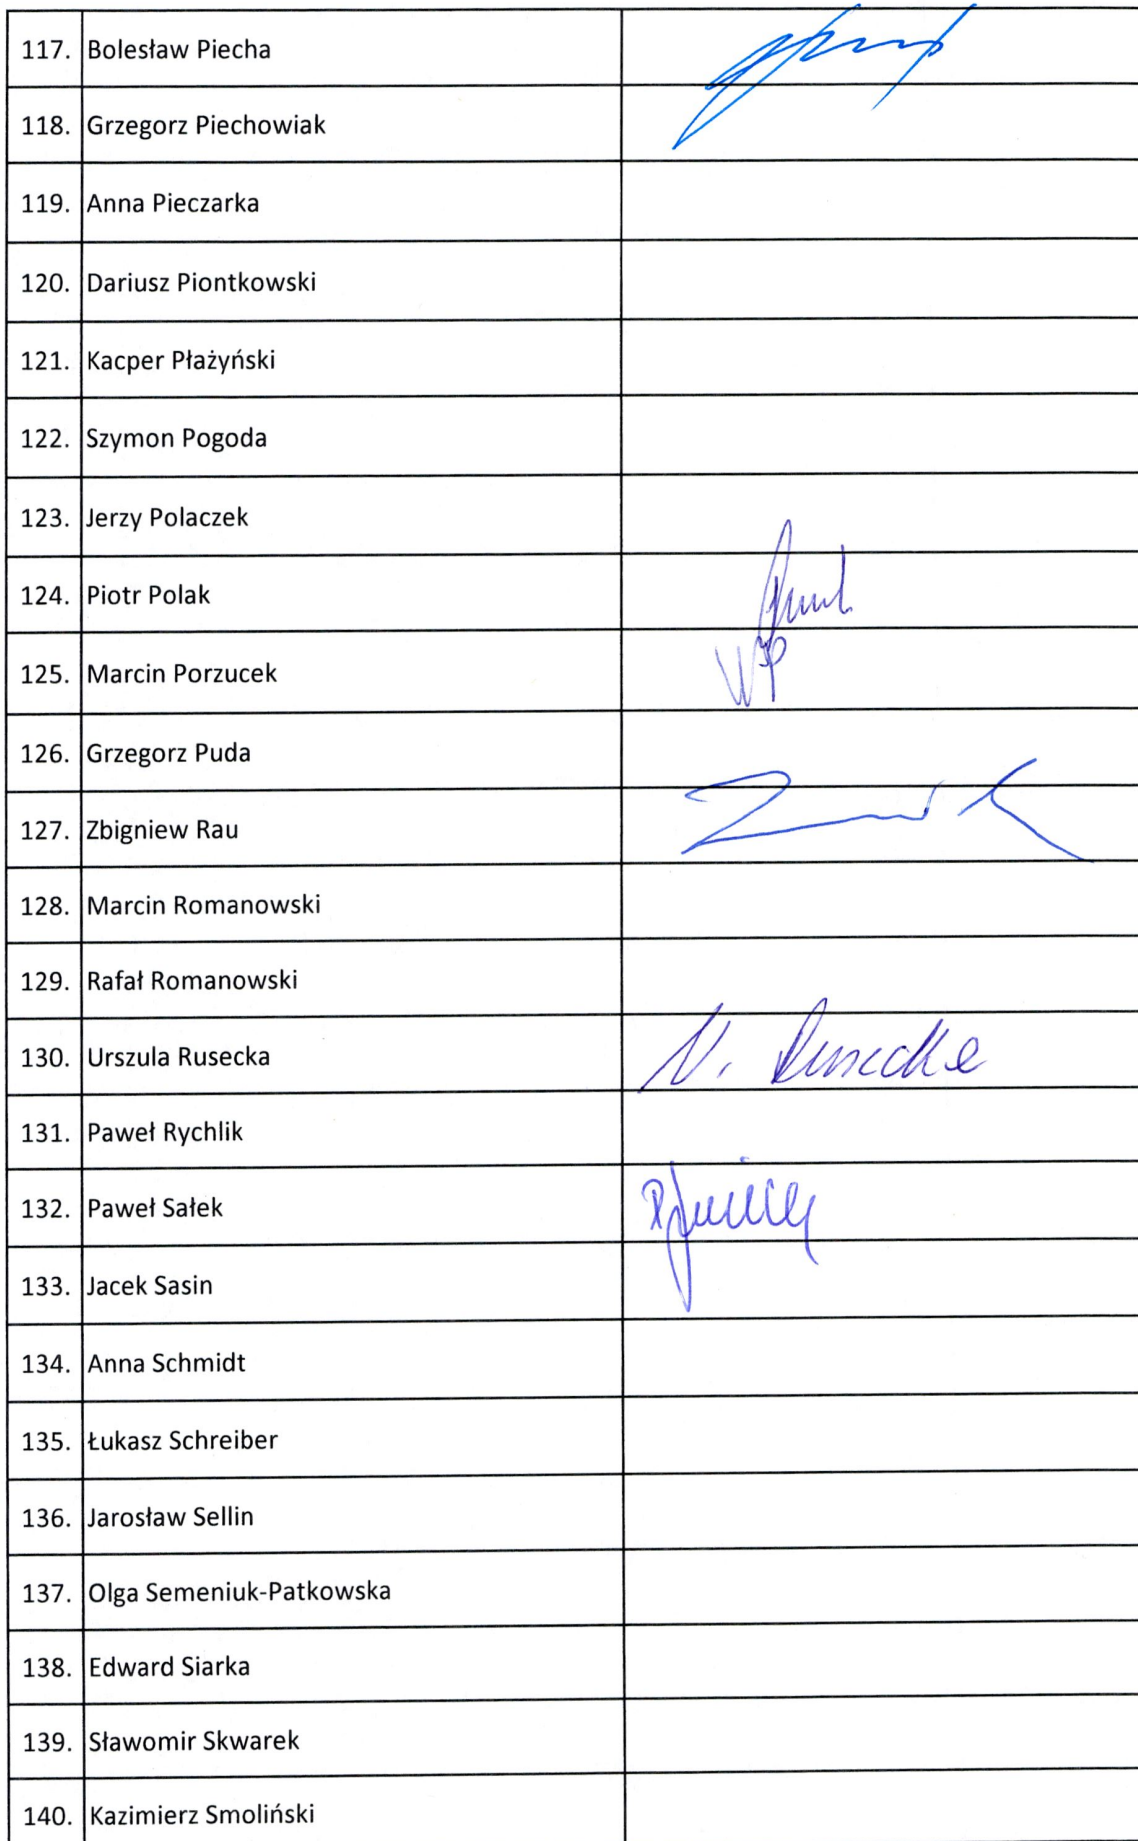 117. Bolesław Piecha
118. Grzegorz Piechowiak
119. Anna Pieczarka
120. Dariusz Piontkowski
121. Kacper Płażyński
122. Szymon Pogoda
123. Jerzy Polaczek
124. Piotr Polak
125. Marcin Porzucek
126. Grzegorz Puda
127. Zbigniew Rau
128. Marcin Romanowski
129. Rafał Romanowski
130. Urszula Rusecka U. Rusecka
131. Paweł Rychlik
132. Paweł Sałek
133. Jacek Sasin
134. Anna Schmidt
135. Łukasz Schreiber
136. Jarosław Sellin
137. Olga Semeniuk-Patkowska
138. Edward Siarka
139. Sławomir Skwarek
140. Kazimierz Smoliński